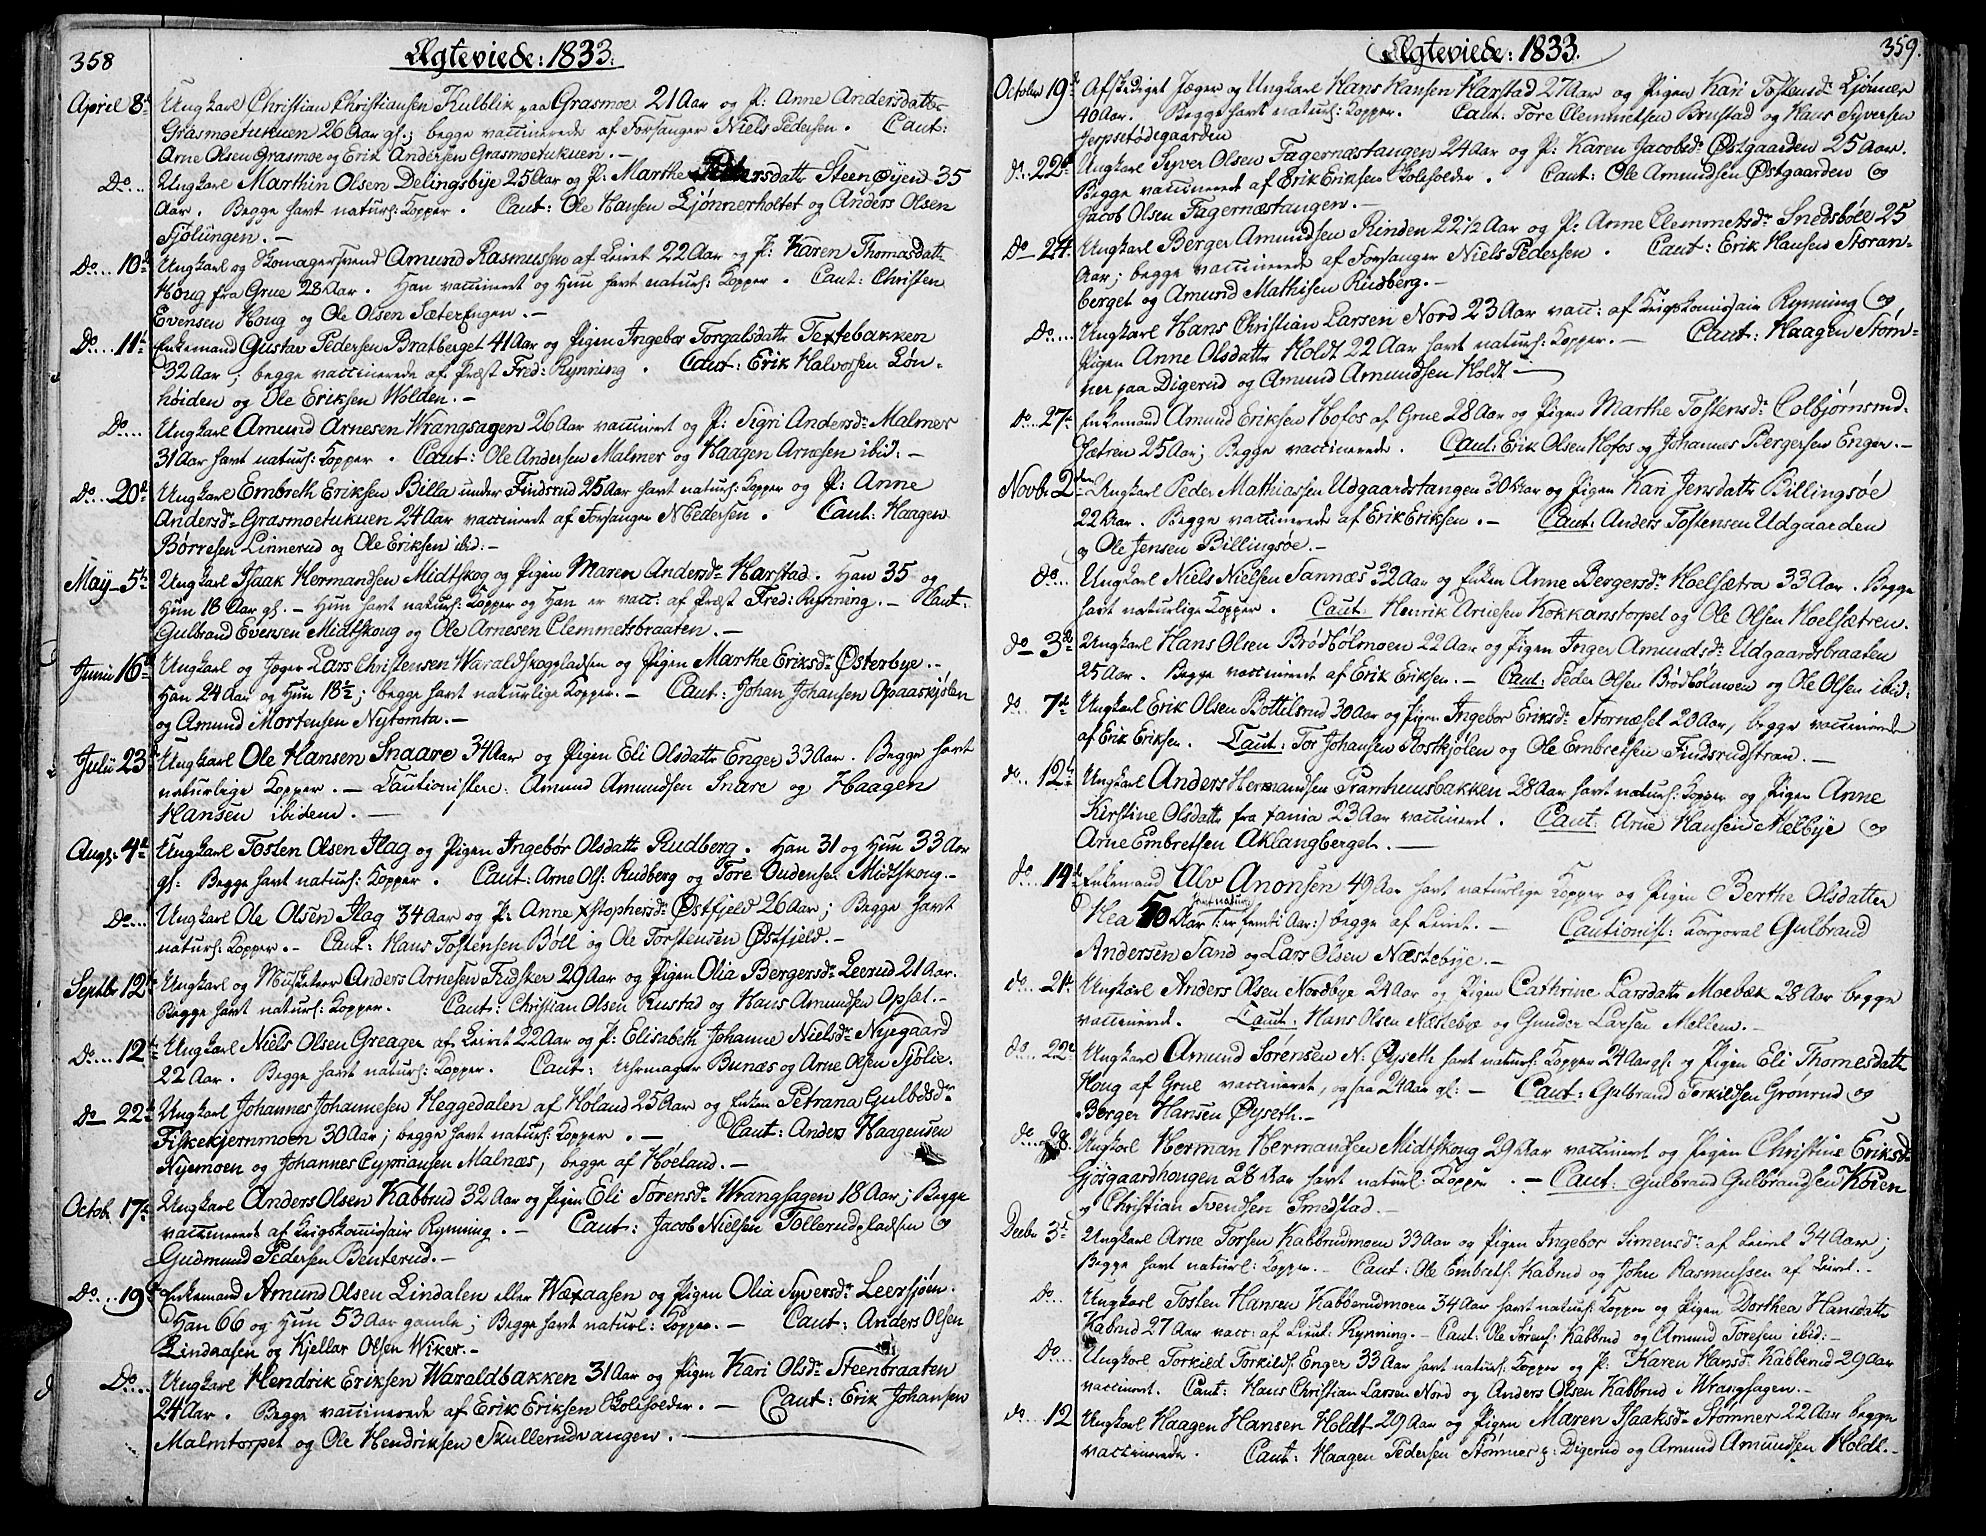 358
Ægteviede: 1833.
April 8de Ungkarl Christian Christiansen Kulblik paa Grasmoe 21 Aar og P: Anne Andersdatter
Grasmoetukuen 26 Aar gl.; begge vaccinerede af Forsanger Niels Pedersen. Caut:
Arne Olsen Grasmoe og Erik Andersen Grasmoetukuen. —
Do... Ungkarl Marthin Olsen Delingsbye 25 Aar og P: Marthe Pedersdattr Steenøyen 35
Aar. Begge havt naturl: Kopper. Caut: Ole Hansen Ljønnerholtet og Anders Olsen
Fjølungen. —
Do... 10de Ungkarl og Skomagersvend Amund Rasmussen af Leiret 22 Aar og P: Karen Thomasdattr
Houg fra Grue 28 Aar. Han vaccineret og Hun havt naturl: Kopper. Caut: Christen
Evensen Houg og Ole Olsen SæterEngen. —
Do... 11te Enkemand Gustav Pedersen Bratberget 41 Aar og Pigen Ingebor Torgalsdattr Textebakken
32 Aar; begge vaccinerede af Præst Fred: Rynning. Caut: Erik Halvorsen Løn-
høiden og Ole Eriksen Wolden. —
Do... Ungkarl Amund Arnesen Wrangsagen 26 Aar vaccineret og P: Sigri Andersdr Malmer
31 Aar havt naturl: Kopper. Caut: Ole Andersen Malmer og Haagen Arnesen ibid: —
Do... 20de Ungkarl Embreth Eriksen Billa under Findsrud 25 Aar havt naturl: Kopper og P: Anne
Andersdr Grasmoetukuen 24 Aar vaccineret af Forsanger NPedersen. Caut: Haagen
Børresen Linnerud og Ole Eriksen ibid: —
May 5te Ungkarl Isaak Hermandsen Midtskog og Pigen Maren Andersdr Harstad. Han 35 og
Hun 18 Aar gl. — Hun havt naturl: Kopper og Han er vacc: af Præst Fred: Rynning. — Caut:
Gulbrand Evensen Midtskoug og Ole Arnesen Clemmetsbraaten. —
Junii 16de Ungkarl og Jæger Lars Christensen Waraldskogpladsen og Pigen Marthe Eriksdr Østerbye. —
Han 24 Aar og Hun 18½; begge havt naturlige Kopper. — Caut: Johan Johansen Opaaskjølen
og Amund Mortensen Nytomta. —
Julii 23de Ungkarl Ole Hansen Snaare 34 Aar og Pigen Eli Olsdattr Enger 33 Aar. Begge havt
naturlige Kopper. — Cautionistere: Amund Amundsen Snare og Haagen
Hansen ibidem. —
Augst 4de Ungkarl Tosten Olsen Flag og Pigen Ingebør Olsdattr Rudberg. Han 31 og Hun 33 Aar
gl: Begge havt naturl: Kopper. Caut: Arne Ols: Rudberg og Tore Oudensen Midtskoug. —
Do... Ungkarl Ole Olsen Flag 34 Aar og P: Anne Xstophersdr Østfjeld 26 Aar; Begge havt
naturl: Kopper. — Caut: Hans Tostensen Böll og Ole Torstensen Østfjeld. —
Septbr 12te Ungkarl og Musketeer Anders Arnesen Fudsker 29 Aar og Pigen Olia Bergersdr Leerud 21 Aar.
Begge havt naturl: Kopper. Caut: Christian Olsen Rustad og Hans Amundsen Opsæt. —
Do... 12te Ungkarl Niels Olsen Greager af Leiret 22 Aar og P: Elisabeth Johanne Nielsdr Nyegaard
22 Aar. Begge havt naturl: Kopper. Caut: Uhrmager Bunæs og Arne Olsen Fjølie.
Do— 22de Ungkarl Johannes Johannesen Heggedalen af Høland 25 Aar og Enken Petrana Gulbdsdr
Fiskekjernmoen 30 Aar; begge havt naturl: Kopper. — Caut: Anders Haagensen
Nyemoen og Johannes Cyprianson Malnæs, begge af Høeland. —
Octob. 17de Ungkarl Anders Olsen Kabbrud 32 Aar og Pigen Eli Sørensdr Wrangsagen 18 Aar; Begge
vaccineret af Krigskomissair Rynning. — Caut: Jacob Nielsen Tollerudpladsen og
Gudmund Pedersen Benterud. —
Do... 19de Enkemand Amund Olsen Lindalen eller Waxaasen og Pigen Olia Syversdr Leersjøen.
Han 66 og Hun 53 Aar gamle; Begge havt naturl: Kopper. — Caut: Anders Olsen
Lindaasen og Kjellar Olsen Wiker. —
Do... Ungkarl Hendrik Eriksen Waraldbakken 31 Aar og Pigen Kari Olsdr Steenbraaten
24 Aar. Begge vaccinerede af Erik Eriksen Skoleholder. — Caut: Erik Johansen
Malmtorpet og Ole Hendriksen Skullerudvangen. —
359.
Ægteviede: 1833.
October 19de Afskediget Jæger og Ungkarl Hans Hansen Harstad 27 Aar og Pigen Kari Tostensdr Ljønner
40 Aar. Begge havt naturl: Kopper. Caut: Tore Clemmetsen Brustad og Hans Syversen
Jerpsetødegaarden
do.. 22de Ungkarl Syver Olsen Fagernæstangen 24 Aar og P: Karen Jacobsdr Østgaarden 25 Aar.
Begge vaccineret af Erik Eriksen Skoleholder. Caut: Ole Amundsen Østgaarden og
Jacob Olsen Fagernæstangen. —
Do— 24de Ungkarl Berger Amundsen Rinden 22 1/2 Aar og P: Anne Clemmetsdr Snedsböll 25
Aar; begge vaccinerede af Forsanger Niels Pedersen. Caut: Erik Hansen Storan-
berget og Amund Mathisen Rudberg. —
Do.... Ungkarl Hans Christian Larsen Nord 23 Aar vacc: af Krigskomissair Rynning og
Pigen Anne Olsdattr Holdt 22 Aar havt naturl: Kopper. — Caut: Haagen Støm-
ner paa Digerud og Amund Amundsen Holdt —
do.. 27de Enkemand Amund Eriksen Hofos af Grue 28 Aar og Pigen Marthe Tostensdr Colbjørnsrud-
sætren 25 Aar; Begge vaccinerede. Caut: Erik Olsen Hofos og Johannes Bergersen Enger. —
Novbr. 2den Ungkarl Peder Mathiassen Udgaardstangen 30 Aar og Pigen Kari Jensdattr Billingsøe
22 Aar. Begge vaccinerede af Erik Eriksen. — Caut: Anders Tostensen Udgaarden
og Ole Jensen Billingsøe. —
do... Ungkarl Niels Nielsen Sannæs 32 Aar og Enken Anne Bergersdr Hoelsætra 33 Aar. Begge
havt naturlige Kopper. Caut: Henrik Arnesen Kokkanstorpet og Ole Olsen Hoelsætren.
do— 3de Ungkarl Hans Olsen Brødbölmoen 22 Aar og Pigen Inger Amundsdr Udgaardsbraaten
25 Aar. Begge vaccineret af Erik Eriksen. — Caut: Peder Olsen Brødbölmoen og Ole Olsen ibid:
do.. 7de Ungkarl Erik Olsen Bottilsrud 30 Aar og Pigen Ingebor Eriksdr Stornæset 20 Aar, begge vaccinerede
af Erik Eriksen. Caut: Tor Johansen Rostkjølen og Ole Embretsen Findsrudstran. —
do.. 12te Ungkarl Anders Hermandsen Pramhuusbakken 28 Aar havt naturl: Kopper og Pigen Anne
Kirstine Olsdattr fra Xania 23 Aar vaccineret. Caut: Arne Hansen Melbye og
Arne Embretsen Aklangberget. —
do... 14de Enkemand Alv Anonsen 49 Aar havt naturlige Kopper og Pigen Berthe Olsdatter
Hea 50 Aar (: er femti Aar:) havt naturl: begge af Leiret. — Cautionist: Korporal Gulbrand
Andersen Sand og Lars Olsen Næstebye. —
do.. 21de Ungkarl Anders Olsen Nordbye 24 Aar og Pigen Cathrine Larsdattr Moebæk 28 Aar begge
vaccineret. Caut: Hans Olsen Næstebye og Gunder Larsen Mellem. —
do.. 22de Ungkarl Amund Sørensen N: Øyseth havt naturl: Kopper 24 Aar gl: og Pigen Eli Thomesdattr
Houg af Grue vaccineret, ogsaa 24 Aar gl: — Caut: Gulbrand Torkildsen Grønrud og
Berger Hansen Øyseth. —
do.. 28. Ungkarl Herman Hermandsen Midtskoug 29 Aar vaccineret og Pigen Christine Eriksdr
Gjøsgaardhougen 28 Aar havt naturl: Kopper. — Caut: Gulbrand Gulbrandsen Köien
og Christian Svendsen Smedstad. —
Decbr 3de Ungkarl Arne Torsen Kabbrudmoen 33 Aar og Pigen Ingebor Simensdr af Leiret 34 Aar;
Begge havt naturl: Kopper. — Caut: Ole Embrets: Kabrud og John Rasmussen af Leiret. —
Do.. Ungkarl Tosten Hansen Kabberudmoen 34 Aar havt naturl: Kopper og Pigen Dorthea Hansdattr
Kabrud 27 Aar vacc: af Lieut: Rynning. — Caut: Ole Sørens: Kabbrud og Amund Toresen ibid: —
Do.... Ungkarl Torkild Torkilds: Enger 33 Aar havt naturl: Kopper og P: Karen Hansdr Kabberud 29 Aar
vaccineret. Caut: Hans Christian Larsen Nord og Anders Olsen Kabbrud i Wrangsagen. —
do.. 12 Ungkarl Haagen Hansen Holdt 29 Aar og Pigen Maren Isaaksdr Stømner 22 Aar begge
vaccinerede. Caut: Haagen Pedersen Stømner p: Digerud og Amund Amundsen Holdt. —